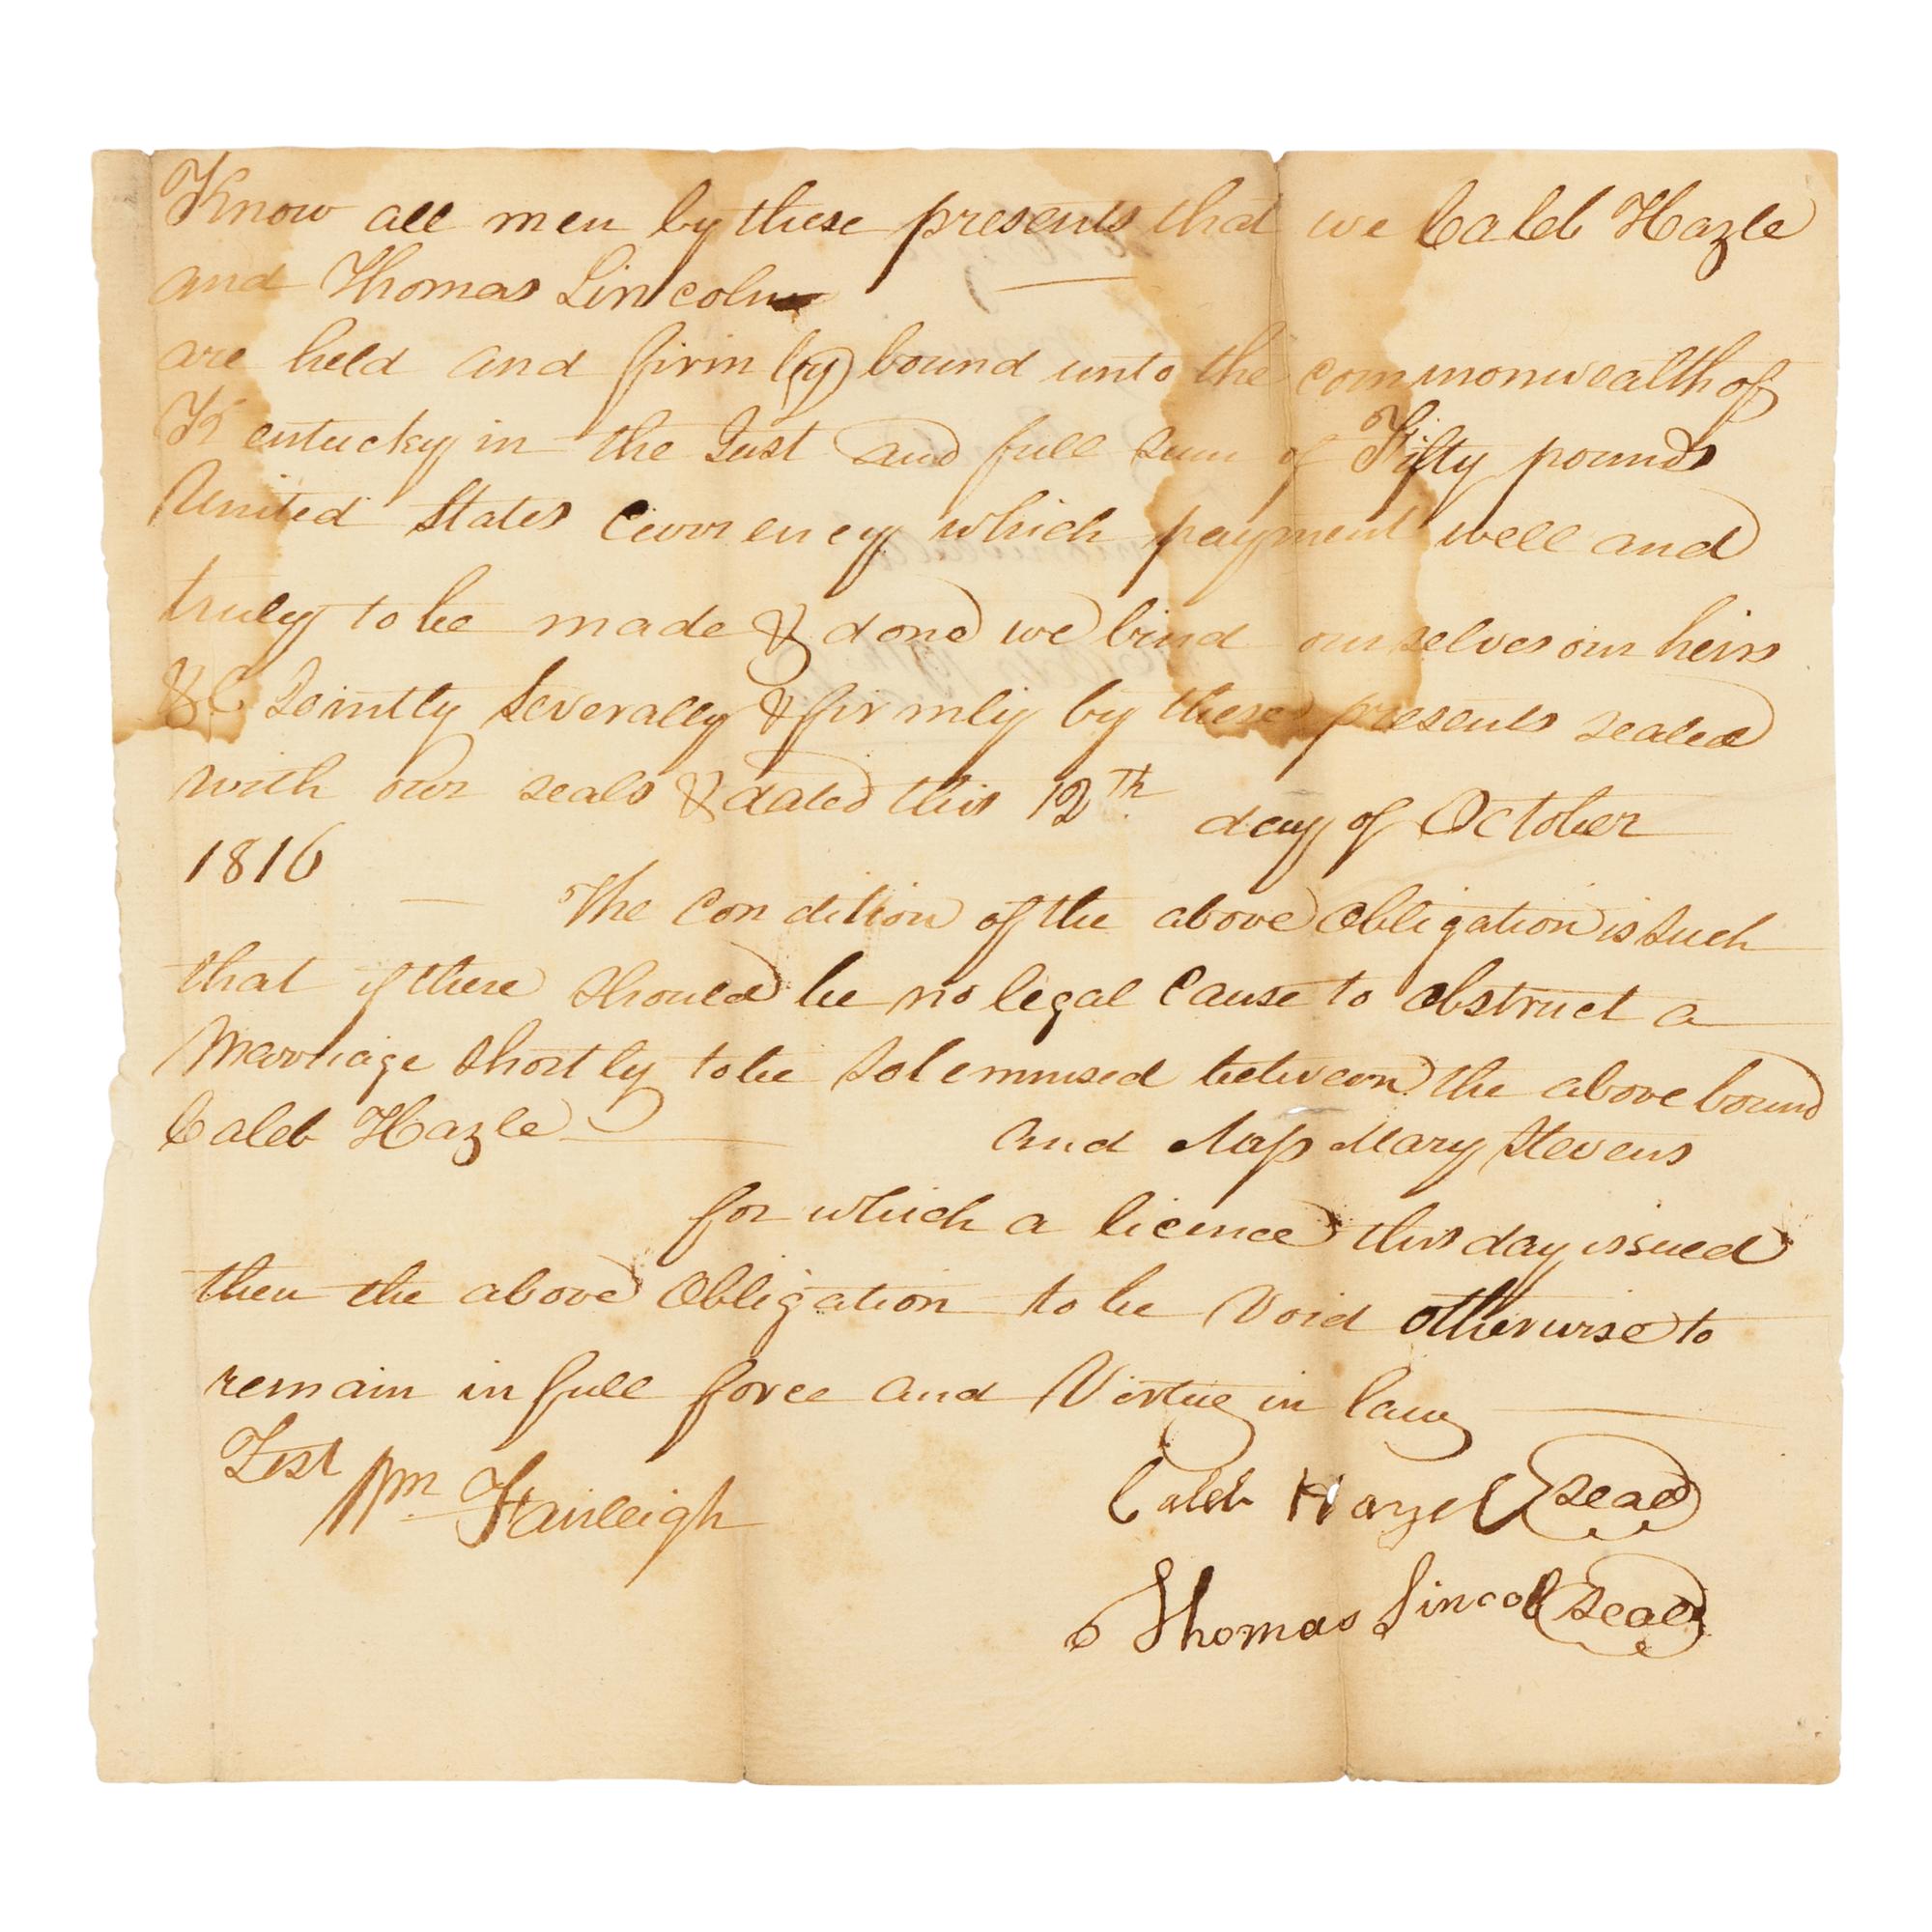 Know all men by these presents that we Caleb Hazle
and Thomas Lincoln
are held and firmly bound unto the commonwealth of
Kentucky in the Just and full sum of Fifty pounds
United States Currency which payment well and
truly to be made & done we bind ourselves our heirs
&C Jointly Severally & firmly by these presents sealed
with our seals & dated this 12th day of October
1816 — The Condition of the above Obligation is Such
that if there should be no legal Cause to obstruct a
Marriage shortly to be Solemnised between the above bound
Caleb Hazle — and Miss Mary Stevens
for which a licence this day issued
then the above Obligation to be Void otherwise to
remain in full force and Virtue in law
Test
Wm Fairleigh
Caleb Hazel Seal
Thomas Lincol Seal